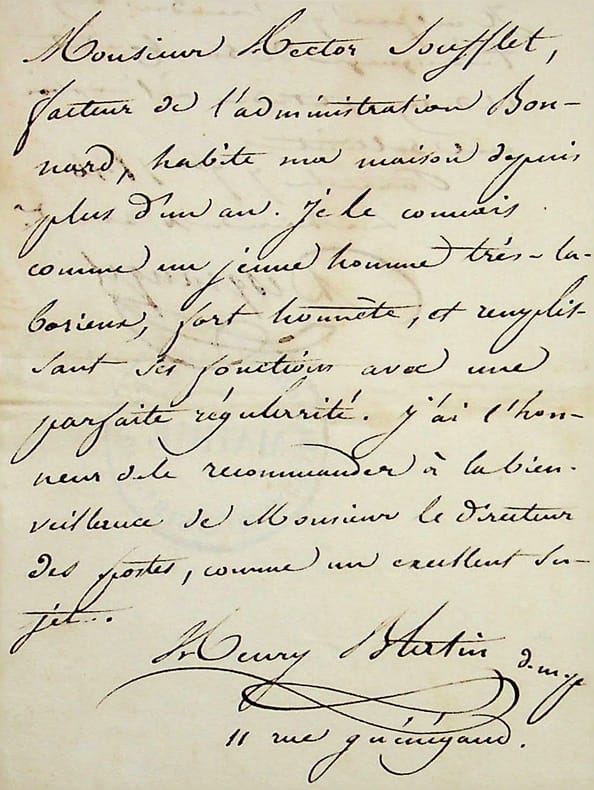 Monsieur Hector Soufflet,
facteur de l'administration Bon-
nard, habite ma maison depuis
plus d'un an. Je le connais
comme un jeune homme très-la-
borieux, fort honnête, et remplis-
sant ses fonctions avec une
parfaite régularité. J'ai l'hon-
neur de le recommander à la bien-
veillance de Monsieur le directeur
des postes, comme un excellent su-
jet.
Henry Bertin
11 rue guénégaud.